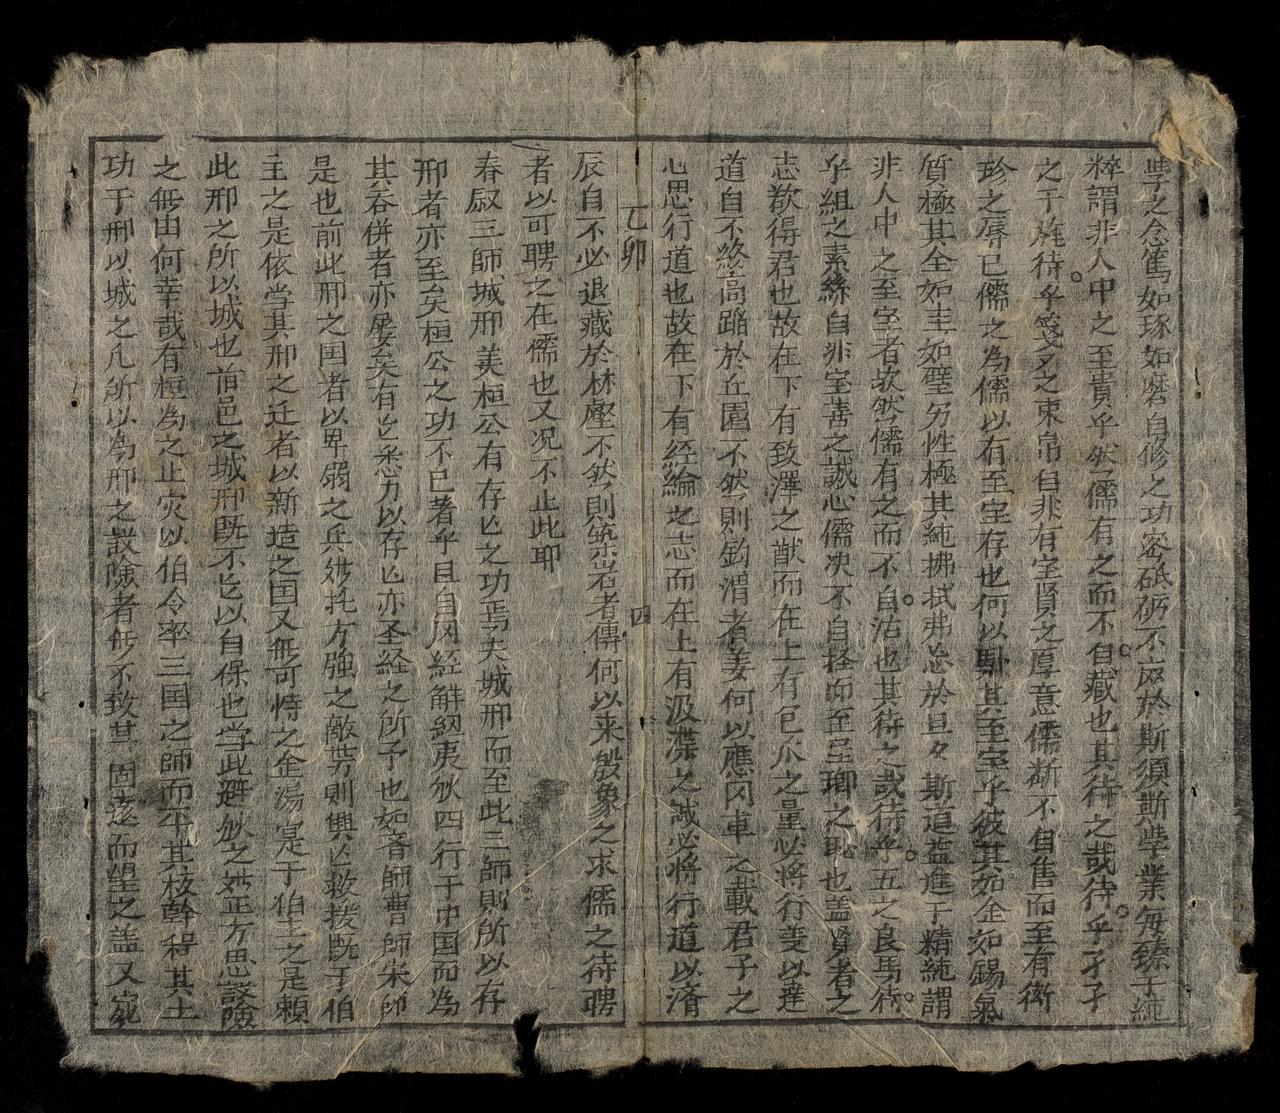 學之念篤如琢如磨自修之功密砥砺不妄於斯須斯學業每臻于純
粹謂非人中之至貴乎然儒有之而不自藏也其待之哉待乎孑孑
之干旌待乎箋々之束帛自非有宝賢之厚意儒断不自售而至有衒
珍之辱已儒之為儒以有至宝存也何以執其至宝乎彼其如金如錫氣
質極其全如圭如璧另性極其純拂拭弗怠於旦々斯道益進于精純謂
非人中之至宝者欤然儒有之而不自沽也其待之哉待乎五之良馬待
乎組之素絲自非宝善之誠心儒决不自挌而至呈瑯之耻也盖賢者之
志欲得君也故在下有致澤之猷而在上有皀爪之量必将行義以達
道自不終高蹈於丘園不然則釣渭者姜何以應冈車之載君子之
心思行道也故在下有経綸之志而在上有汲深之誠必将行道以済
乙卯 四
辰自不必退藏於林壑不然則築岩者傳何以来殷象之求儒之待聘
者以可聘之在儒也又况不止此耶
春叚三師城邢美桓公有存亾之功焉夫城邢而至此三師則所以存
邢者亦至矣桓公之功不已著乎且自冈经觧紐夷狄四行于中国而為
其吞併者亦屡矣有能悉力以存亾亦圣経之所予也如斉師曹師宋師
是也前此邢之国者以卑弱之兵烑托方强之敵势則興亾救援既于伯
主之是依学其邢之迁者以新造之国又無可恃之金湯寔于伯主之是頼
此邢之所以城也首邑之城邢既不能以自保也学此避狄之烑正方思設險
之無由何幸哉有桓為之止灾以伯令率三国之師而平其核幹程其土
功于邢以城之凡所以為邢之設險者無不致其固遠而望之盖又宛